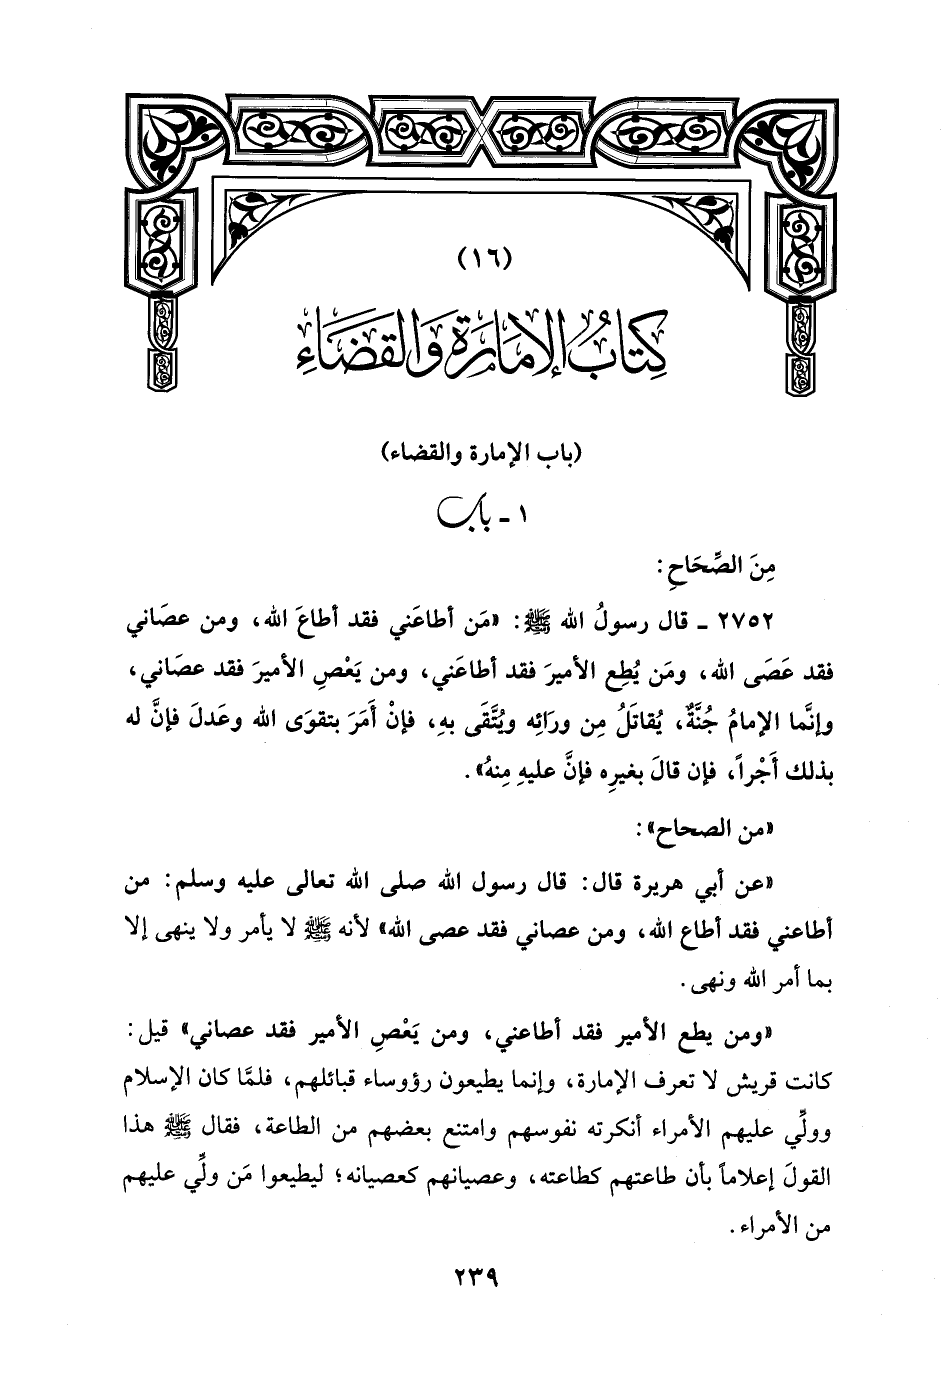 (١٦)
كِتَابُ الإِمَارَةِ وَالقَضَاءِ
(باب الإمارة والقضاء)
١ - باب
مِنَ الصِّحَاحِ:
٢٧٥٢ - قال رسولُ الله ﷺ: «مَن أطاعَني فقد أطاعَ الله، ومن عصَاني
فقد عَصَى الله، ومَن يُطِع الأميرَ فقد أطاعَني، ومن يَعْصِ الأميرَ فقد عصَاني،
وإنَّما الإمامُ جُنَّةٌ، يُقاتَلُ مِن ورَائِه ويُتَّقَى بهِ، فإنْ أَمَرَ بتقوَى الله وعَدلَ فإنَّ له
بذلك أَجْراً، فإن قالَ بغيرِه فإنَّ عليهِ مِنهُ».
«من الصحاح»:
«عن أبي هريرة قال: قال رسول الله صلى الله تعالى عليه وسلم: من
أطاعني فقد أطاع الله، ومن عصاني فقد عصى الله» لأنه ﷺ لا يأمر ولا ينهى إلا
بما أمر الله ونهى.
«ومن يطع الأمير فقد أطاعني، ومن يَعْصِ الأمير فقد عصاني» قيل:
كانت قريش لا تعرف الإمارة، وإنما يطيعون رؤوساء قبائلهم، فلمَّا كان الإسلام
وولِّي عليهم الأمراء أنكرته نفوسهم وامتنع بعضهم من الطاعة، فقال ﷺ هذا
القولَ إعلاماً بأن طاعتهم كطاعته، وعصيانهم كعصيانه؛ ليطيعوا مَن ولِّي عليهم
من الأمراء.
٢٣٩